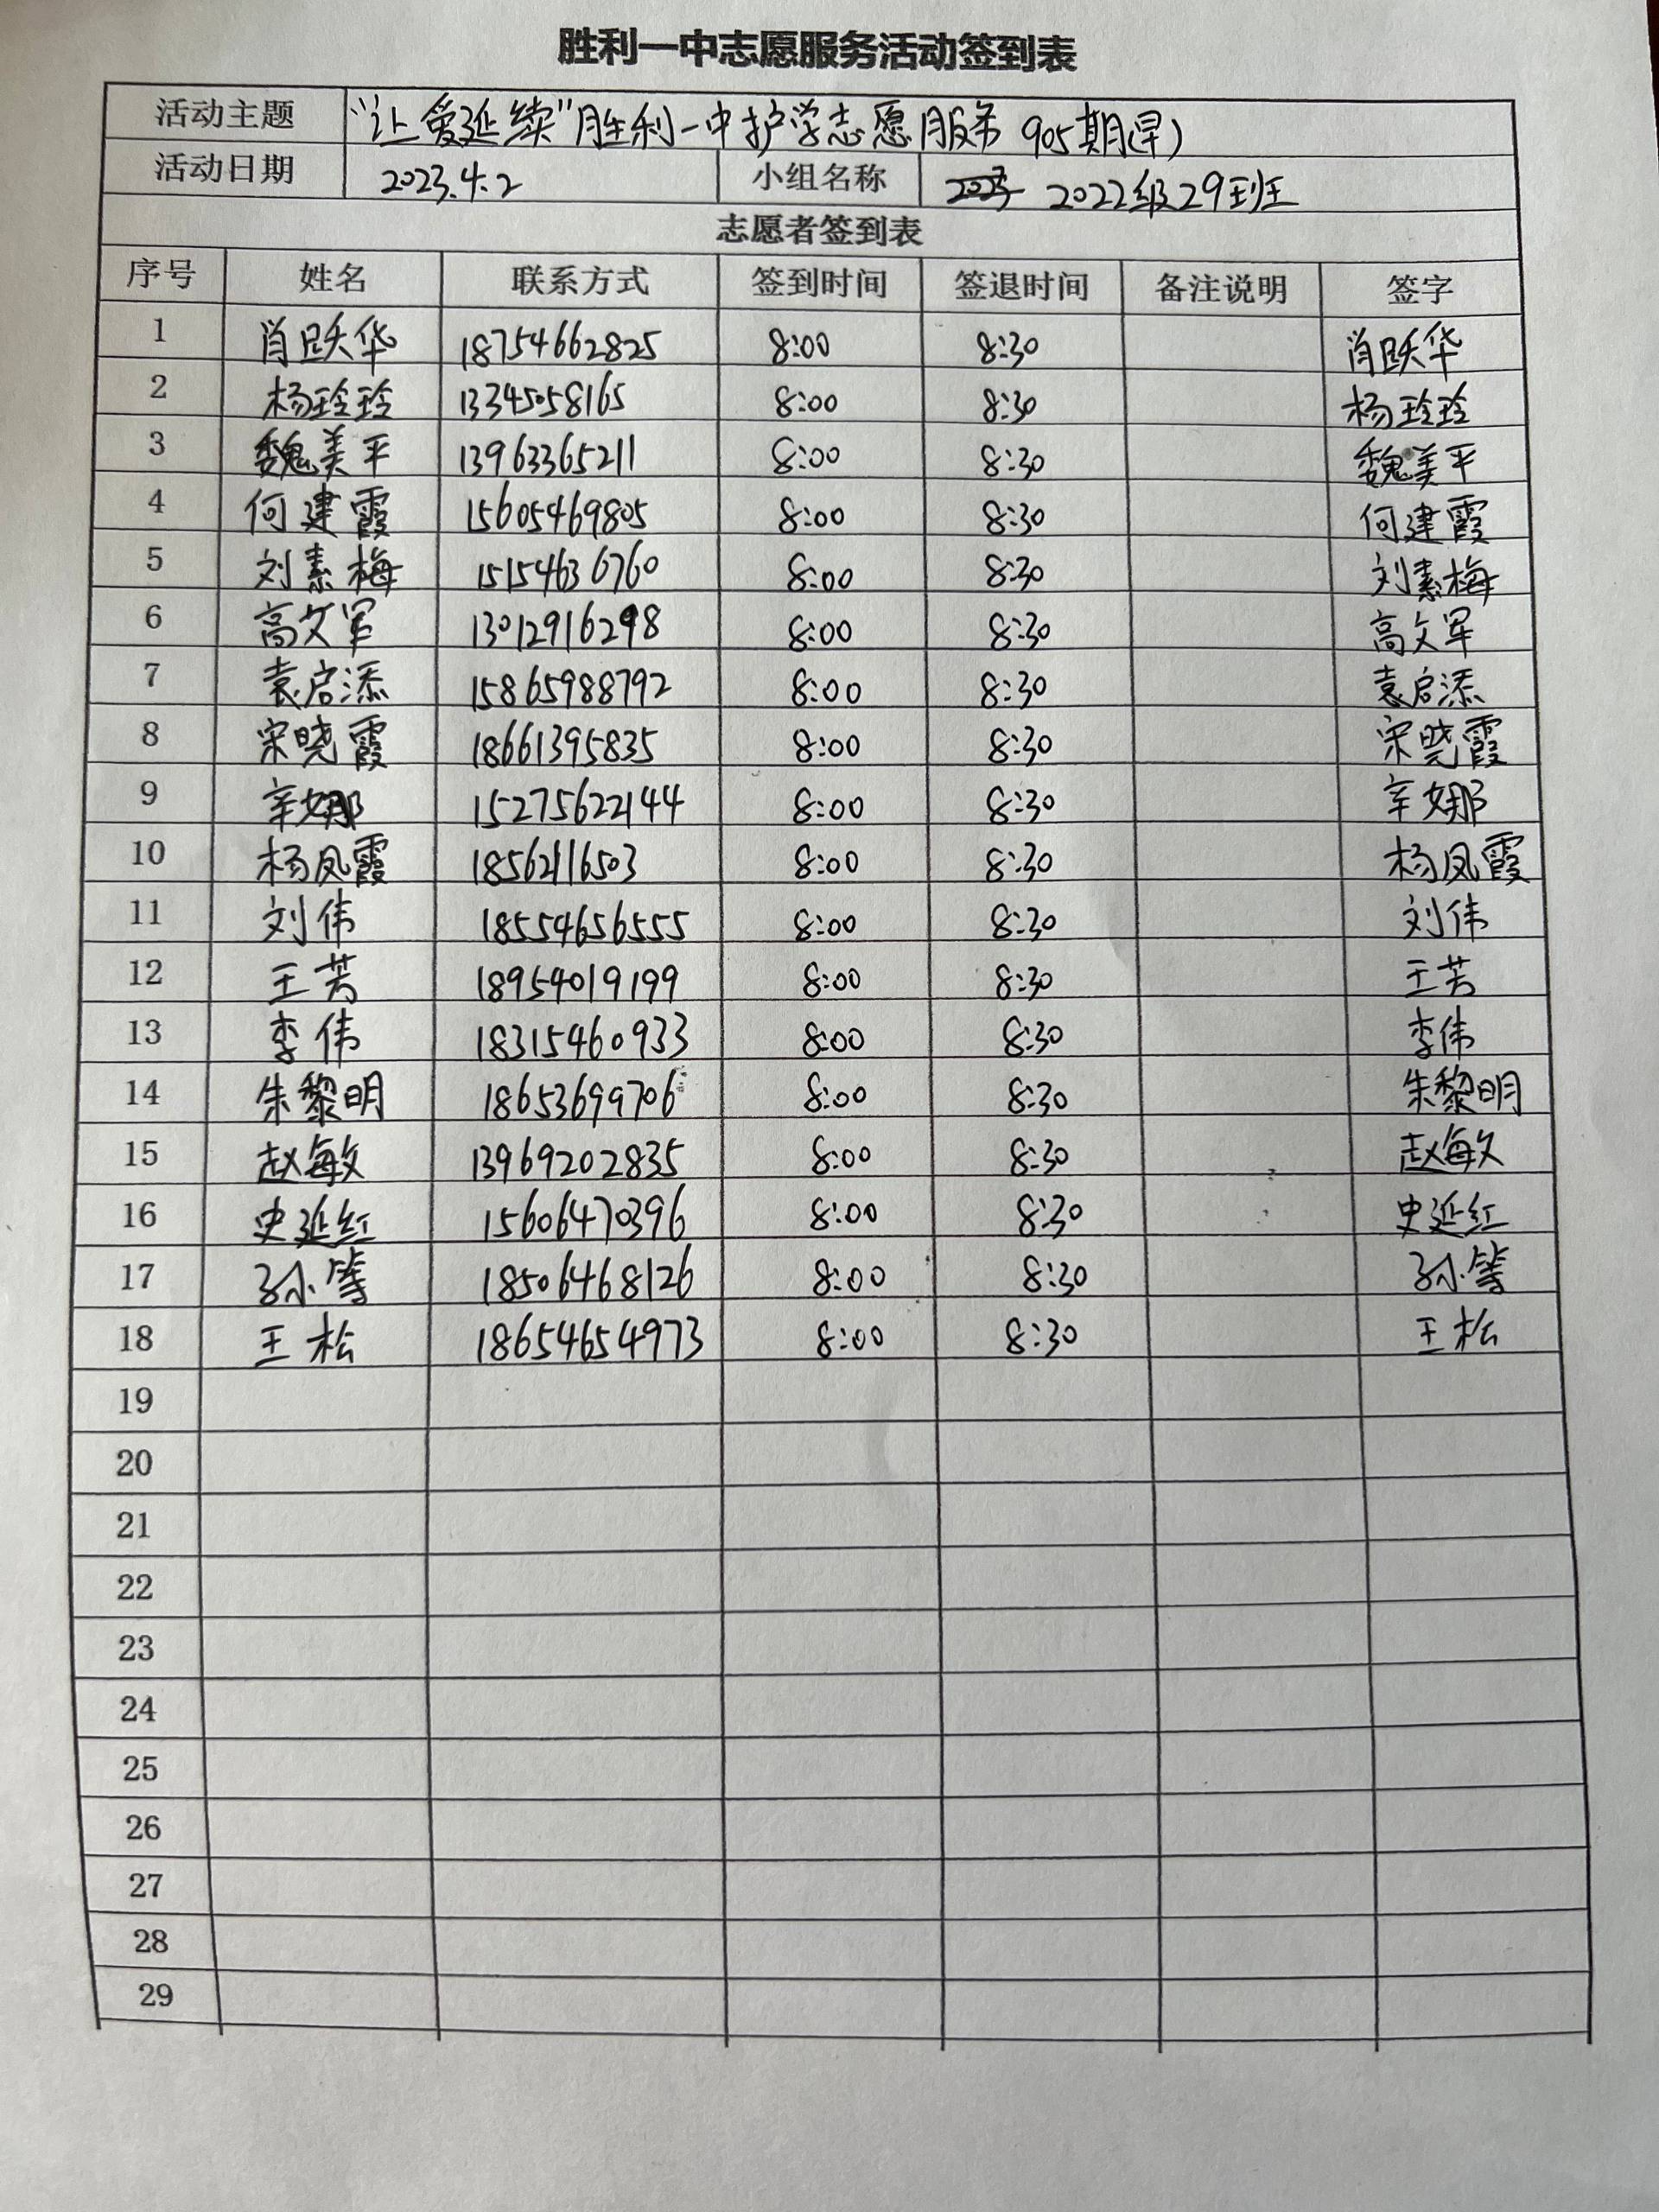 胜利一中志愿服务活动签到表
活动主题 “让爱延续”胜利一中护学志愿服务 905期(早)
活动日期 2023.4.2 小组名称 2022级29班
志愿者签到表
序号 姓名 联系方式 签到时间 签退时间 备注说明 签字
1 肖跃华 18754662825 8:00 8:30 肖跃华
2 杨玲玲 13345058165 8:00 8:30 杨玲玲
3 魏美平 13963365211 8:00 8:30 魏美平
4 何建霞 15605469805 8:00 8:30 何建霞
5 刘素梅 15154636760 8:00 8:30 刘素梅
6 高文军 13012916298 8:00 8:30 高文军
7 袁启添 15865988792 8:00 8:30 袁启添
8 宋晓霞 18661395835 8:00 8:30 宋晓霞
9 辛娜 15275622144 8:00 8:30 辛娜
10 杨凤霞 18562116503 8:00 8:30 杨凤霞
11 刘伟 18554656555 8:00 8:30 刘伟
12 王芳 18954019199 8:00 8:30 王芳
13 李伟 18315460933 8:00 8:30 李伟
14 朱黎明 18653699706 8:00 8:30 朱黎明
15 赵敏 13969202835 8:00 8:30 赵敏
16 史延红 15606470396 8:00 8:30 史延红
17 18506468126 8:00 8:30
18 王松 18654654973 8:00 8:30 王松
19
20
21
22
23
24
25
26
27
28
29